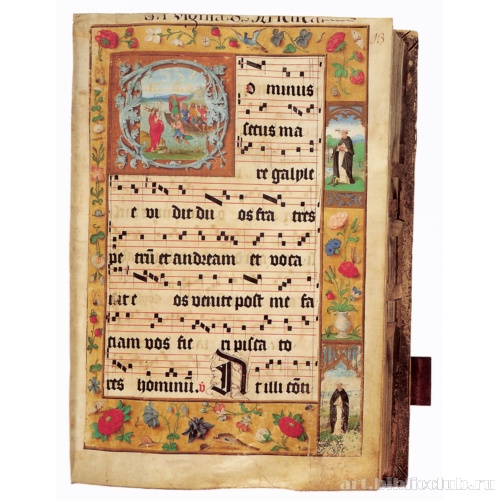 vigilia
o minus
secus ma
re galyle
e vi dit du os fra tres
pe trū et andream et voca
uit e os venite post me fa
ciam vos fie ri pisca to
res hominū. v At illi cōti
art.biblioclub.ru